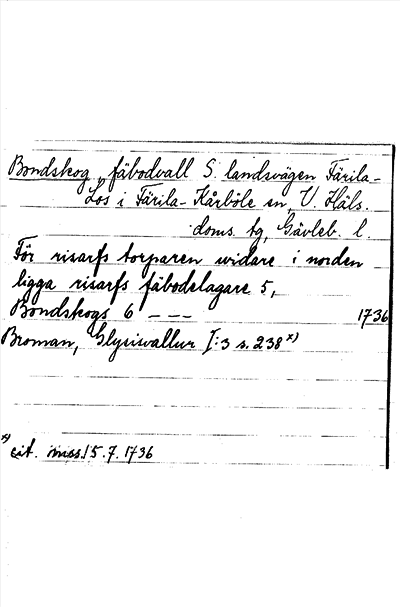 Bondskog, fäbodvall S. landsvägen Färila-
Los i Färila-Kårböle sn, V. Häls.
doms. tg, Gävleb. l.
För risarfs torparen widare i norden
ligga risarfs fäbodelagare 5,
Bondskogs 6 – – – 1736
Broman, Glysisvallur I:3 s. 238 x)
x) cit. miss. 15.7.1736